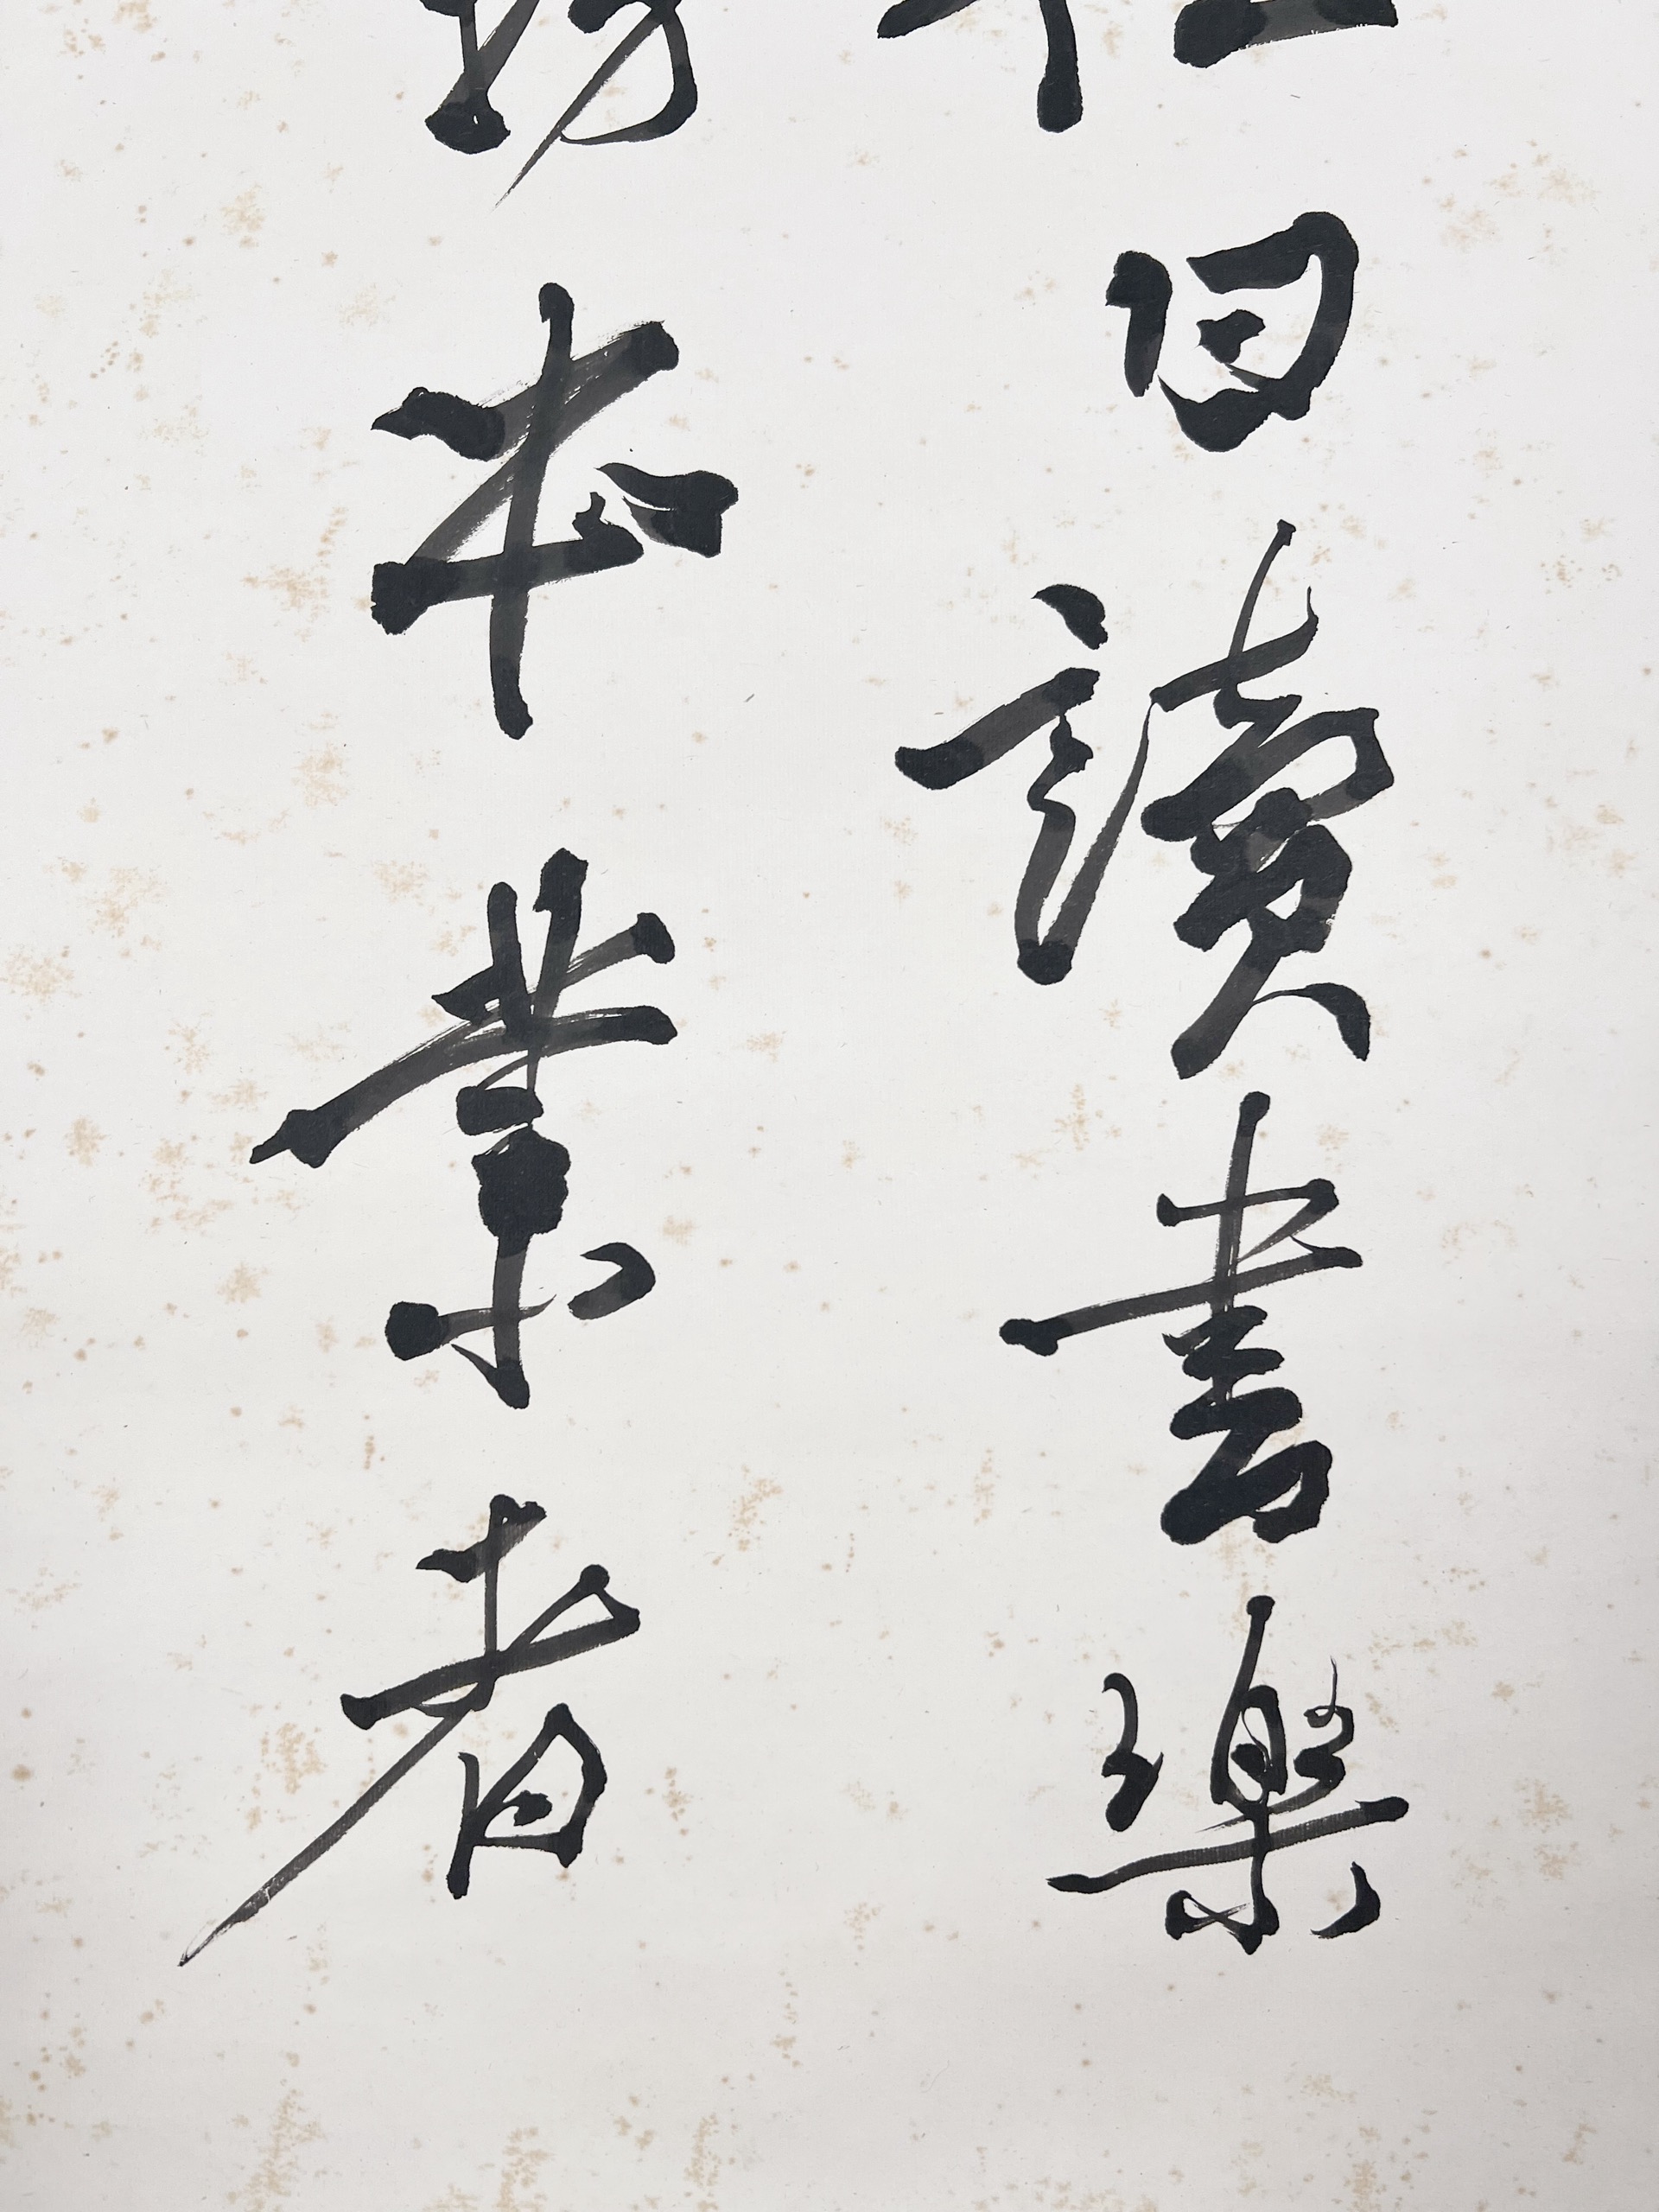 日讀書樂
本業者